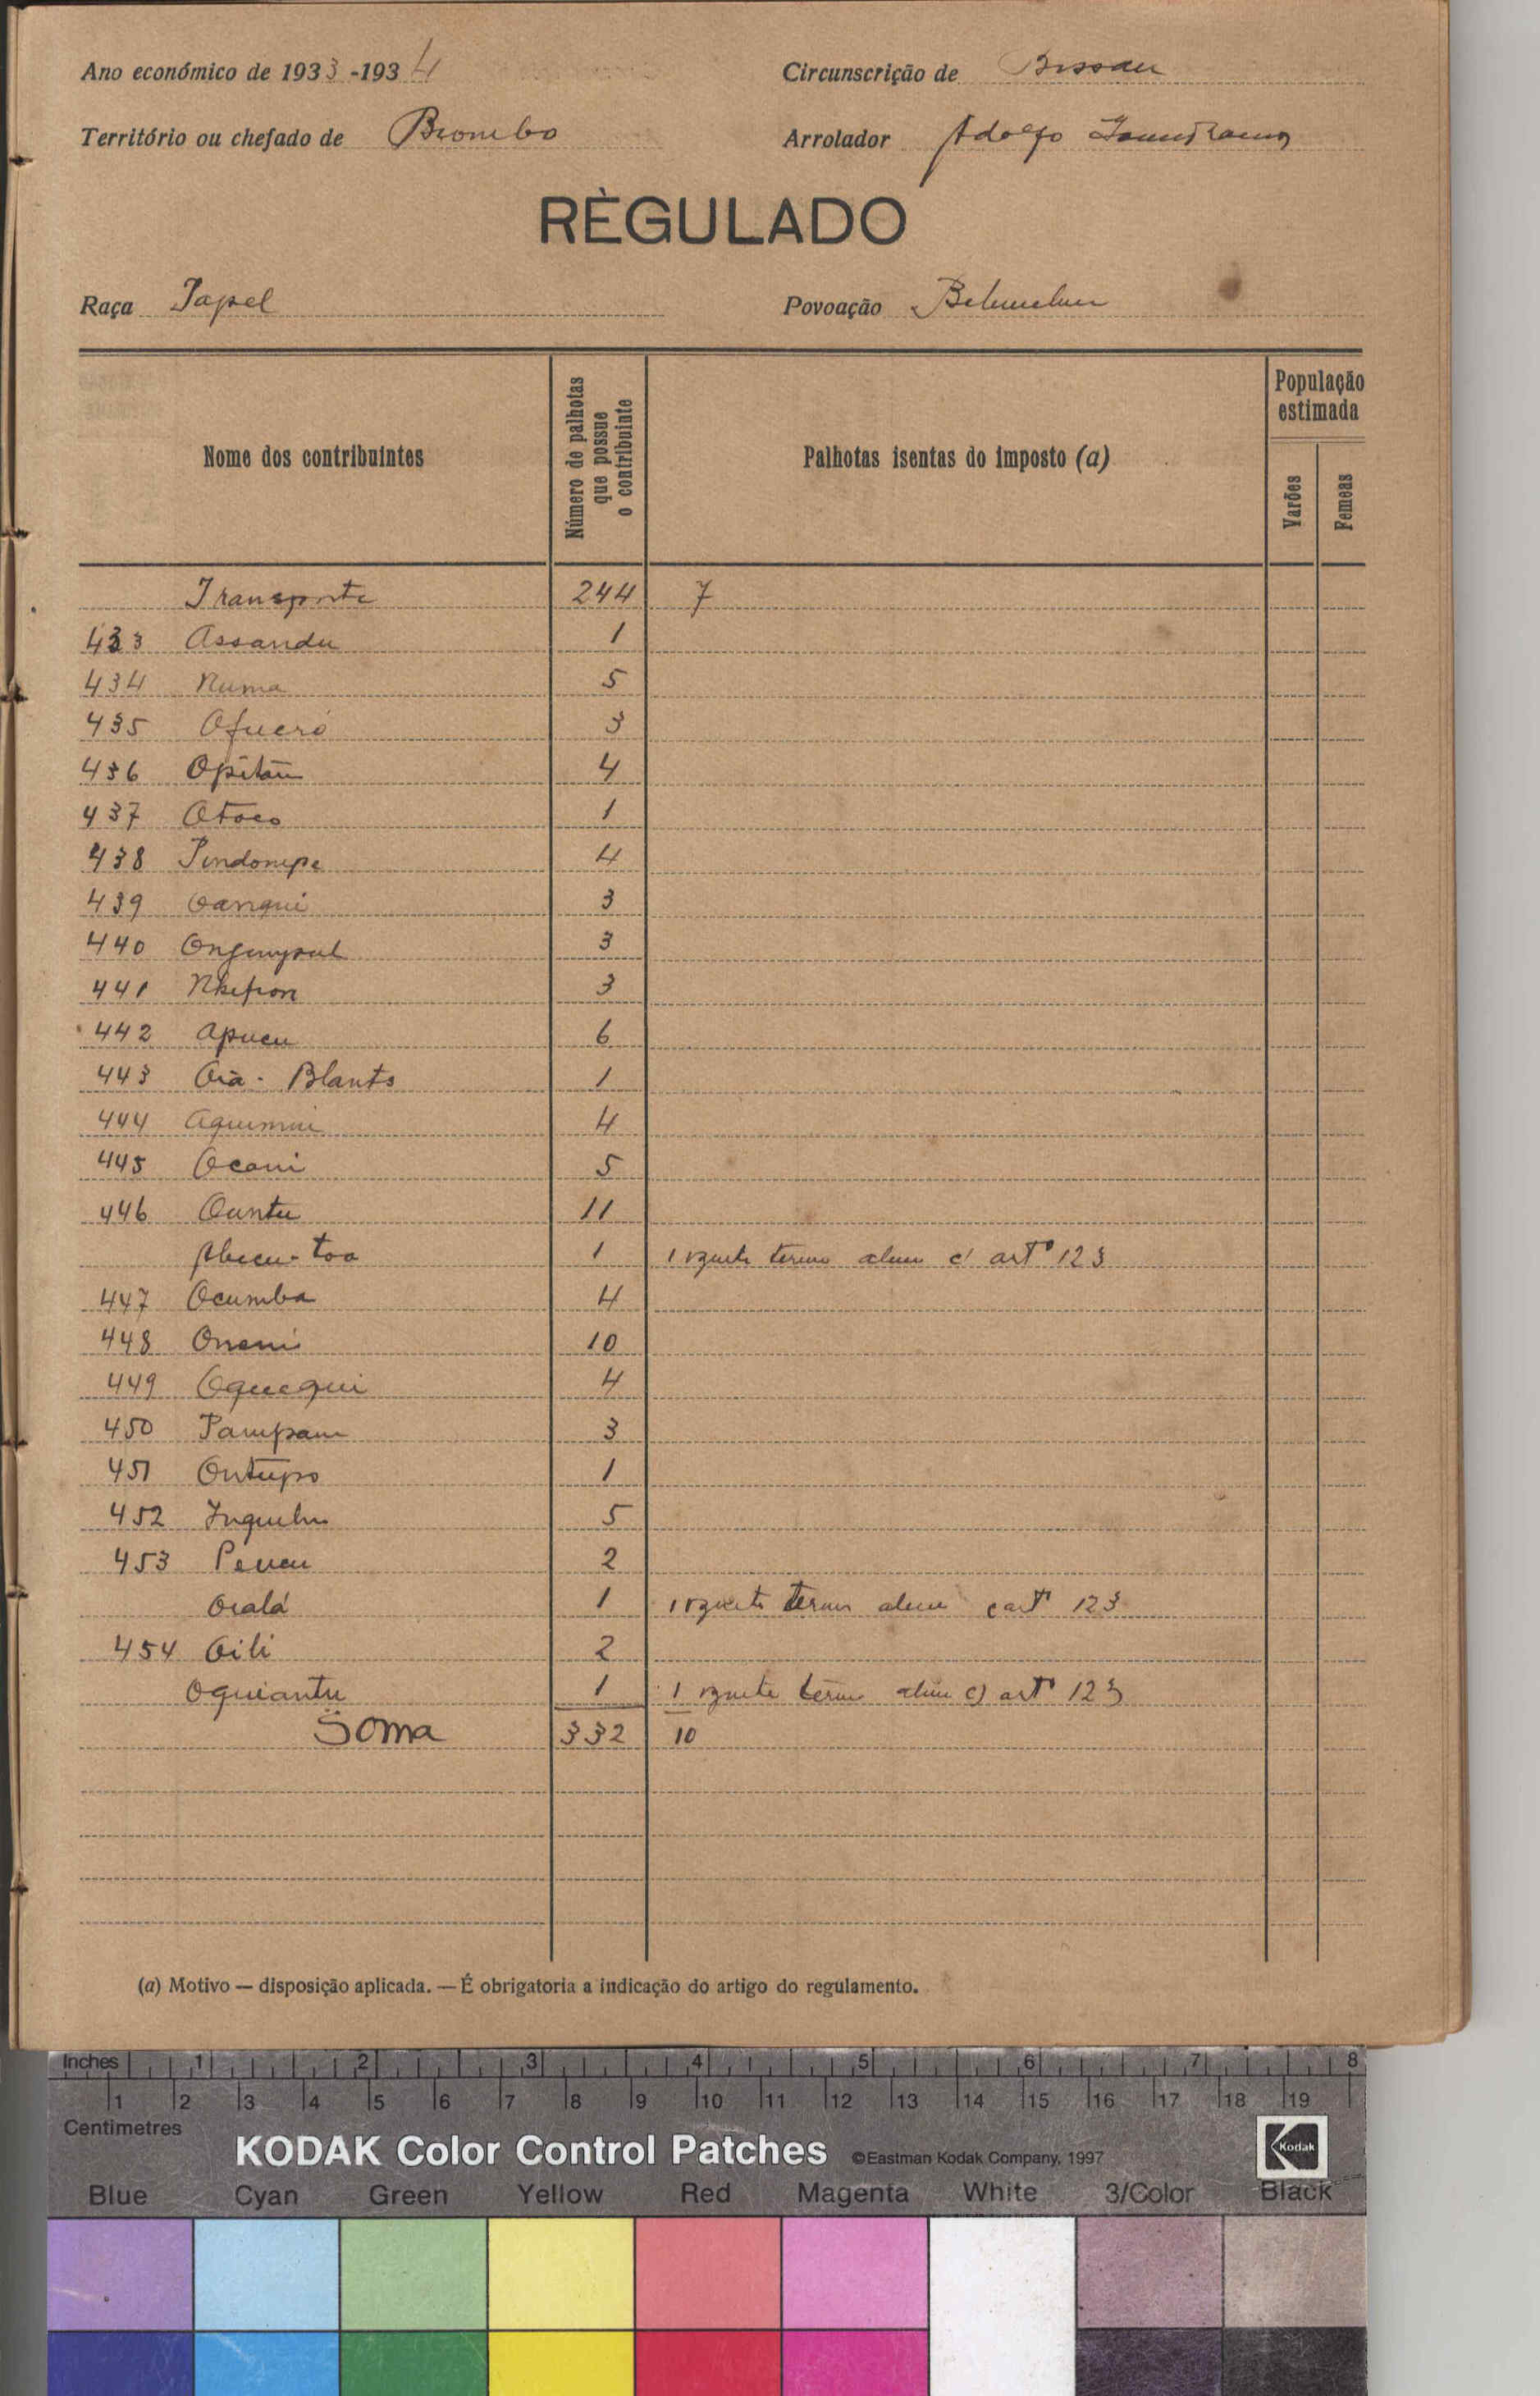 Ano económico de 1933-1934 Circunscrição de Bissau
Território ou chefado de Biombo Arrolador Adolfo
RÈGULADO
Raça Papel Povoação
Nome dos contribuintes Número de palhotas que possue o contribuinte Palhotas isentas do imposto (a) População estimada Varões Femeas
Transporte 244 7
433 Assandu 1
434 Numa 5
435 Ofueró 3
436 Opitam 4
437 Otoco 1
438 Pindompe 4
439 Oanqui 3
440 3
441 3
442 Apucu 6
443 Oiá - Blants 1
444 Aquimini 4
445 Ocani 5
446 Ountu 11
toa 1 1 termo c) artº 123
447 Ocumba 4
448 Oneni 10
449 Oquequi 4
450 Pampam 3
451 Ontupo 1
452 5
453 2
Oialá 1 1 termo c artº 123
454 Oili 2
Oquiantu 1 1 termo c) artº 123
Soma 332 10
(a) Motivo — disposição aplicada. — É obrigatoria a indicação do artigo do regulamento.
Inches 1 2 3 4 5 6 7 8
1 2 3 4 5 6 7 8 9 10 11 12 13 14 15 16 17 18 19
Centimetres
KODAK Color Control Patches ©Eastman Kodak Company, 1997 Kodak
Blue Cyan Green Yellow Red Magenta White 3/Color Black